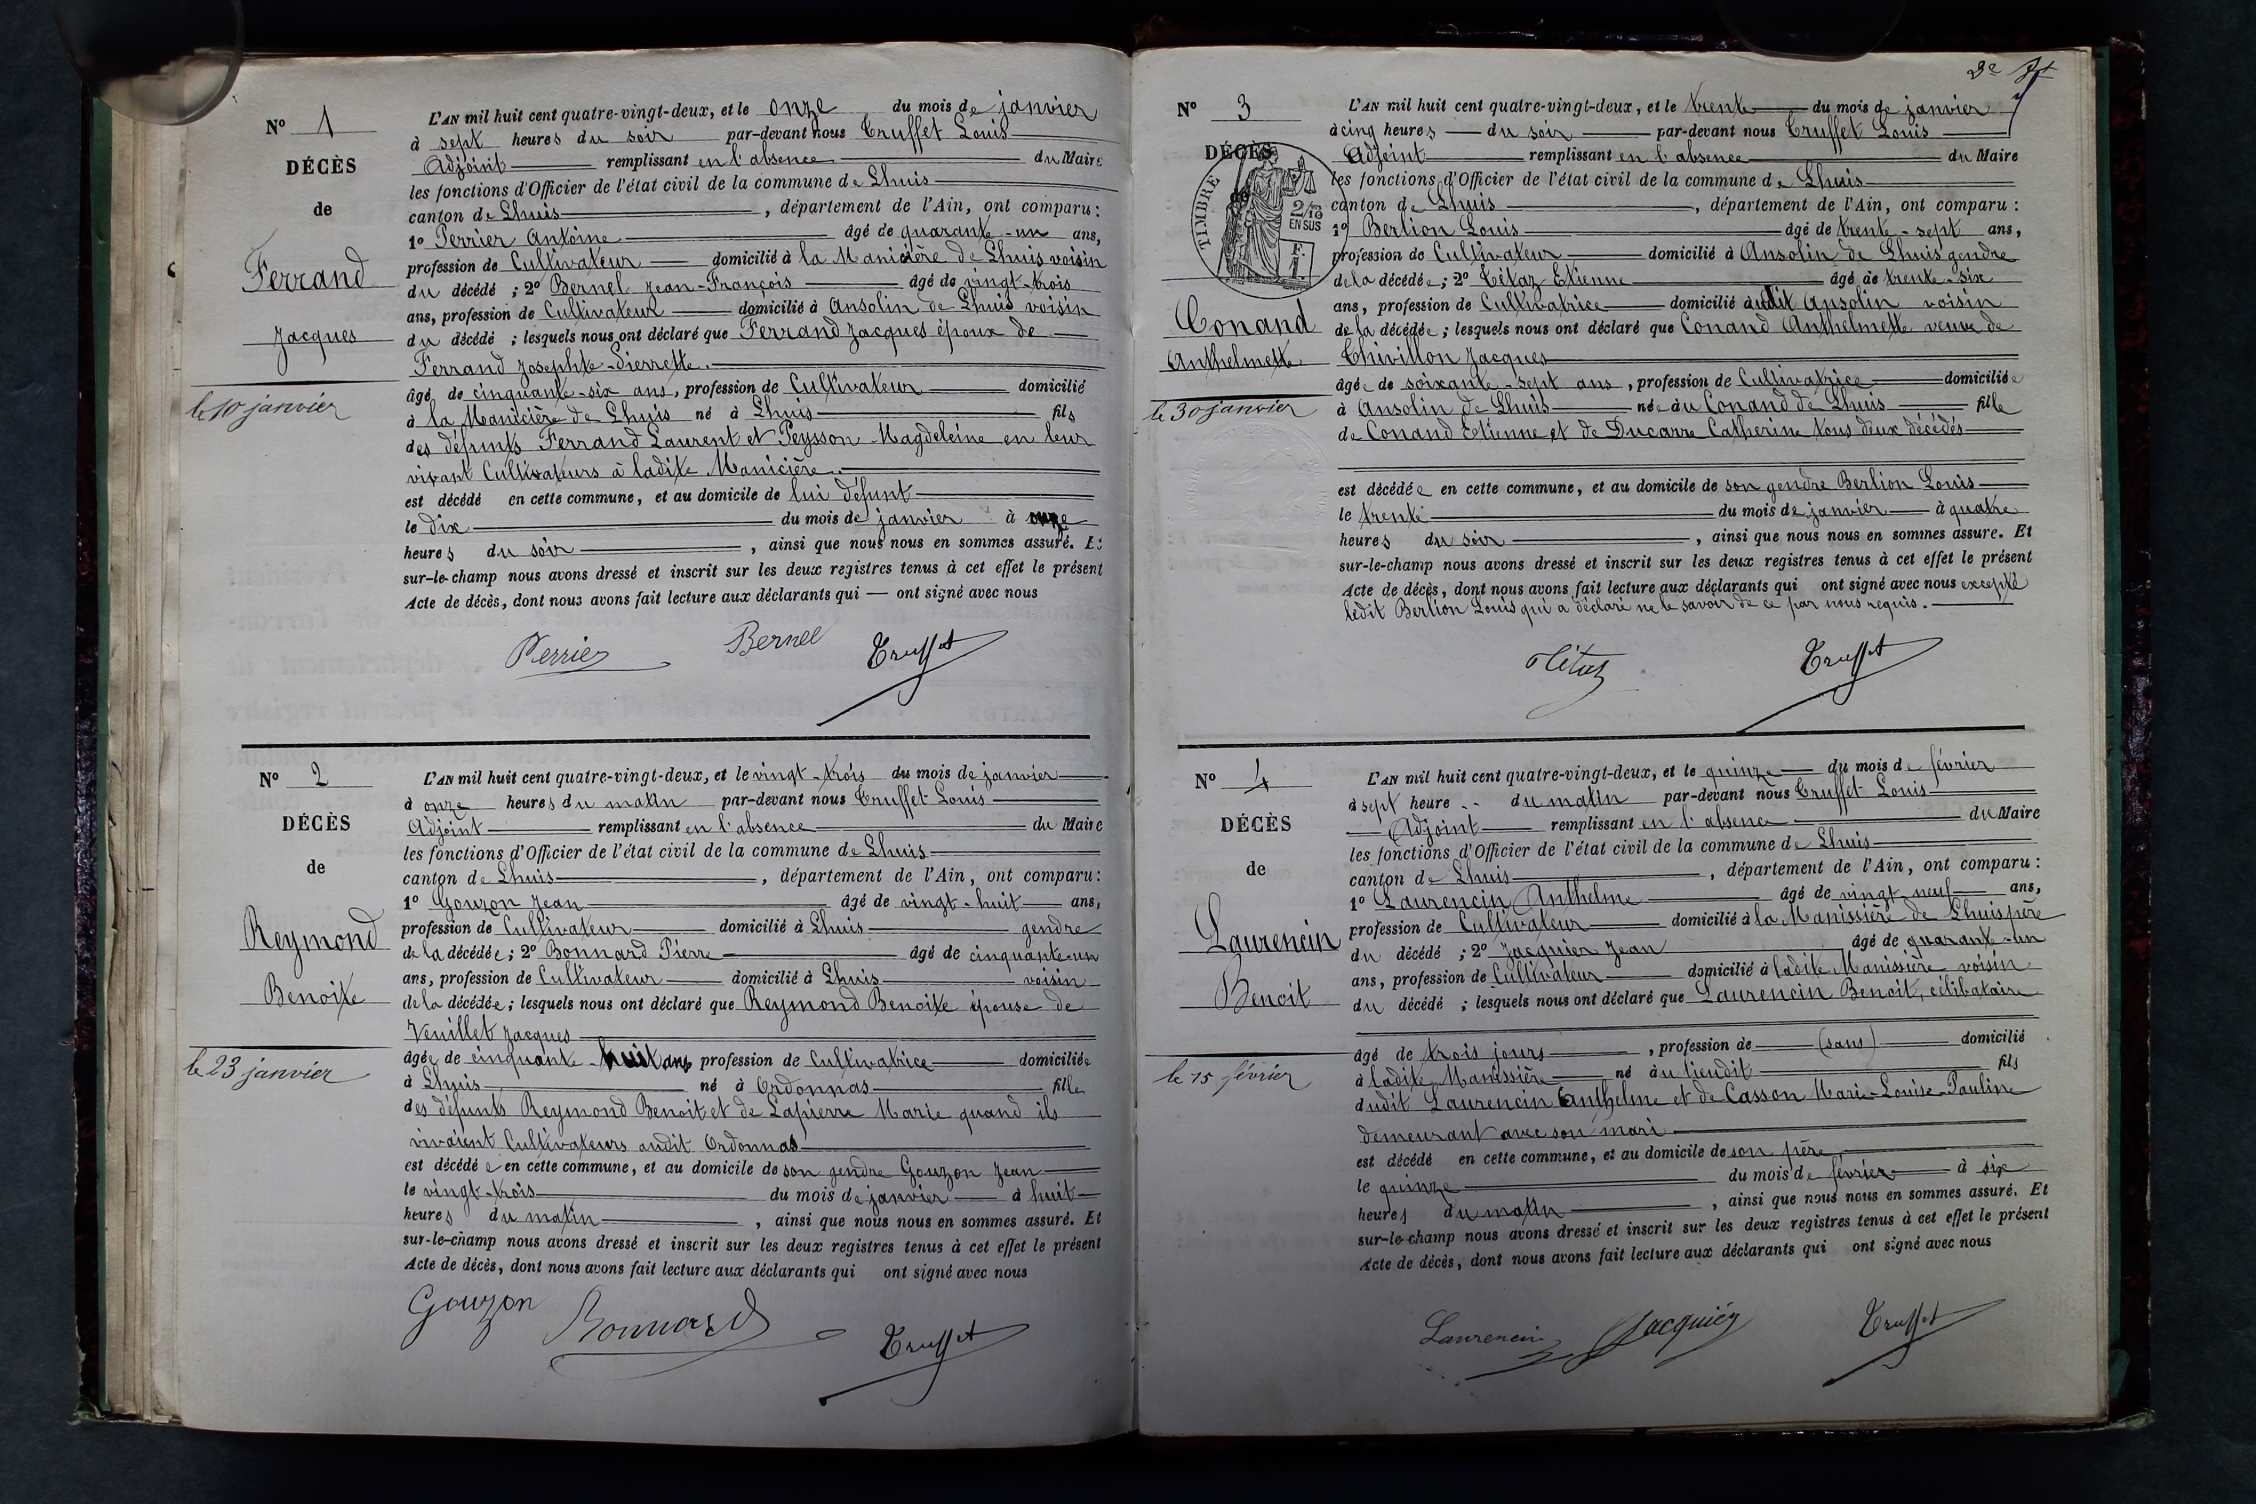 N° 1
DÉCÈS
de
Ferrand
Jacques
le 10 janvier
L'AN mil huit cent quatre-vingt-deux, et le onze du mois de janvier
à sept heures du soir par-devant nous Truffet Louis
Adjoint remplissant en l'absence du Maire
les fonctions d'Officier de l'état civil de la commune de Lhuis
canton de Lhuis , département de l'Ain, ont comparu :
1° Perrier Antoine âgé de quarante-un ans,
profession de Cultivateur domicilié à la Manicière de Lhuis voisin
du décédé ; 2° Bernel Jean-François âgé de vingt-trois
ans, profession de Cultivateur domicilié à Ansolin de Lhuis voisin
du décédé ; lesquels nous ont déclaré que Ferrand Jacques époux de
Ferrand Josephte-Pierrette.
âgé de cinquante-six ans, profession de Cultivateur domicilié
à la Manicière de Lhuis né à Lhuis fils
des défunts Ferrand Laurent et Peysson Magdeleine en leur
vivant Cultivateurs à ladite Manicière.
est décédé en cette commune, et au domicile de lui défunt
le dix du mois de janvier à onze
heures du soir , ainsi que nous nous en sommes assuré. Et
sur-le-champ nous avons dressé et inscrit sur les deux registres tenus à cet effet le présent
Acte de décès, dont nous avons fait lecture aux déclarants qui — ont signé avec nous
Perrier Bernel Truffet
N° 2
DÉCÈS
de
Reymond
Benoite
le 23 janvier
L'AN mil huit cent quatre-vingt-deux, et le vingt-trois du mois de janvier
à onze heures du matin par-devant nous Truffet Louis
Adjoint remplissant en l'absence du Maire
les fonctions d'Officier de l'état civil de la commune de Lhuis
canton de Lhuis , département de l'Ain, ont comparu :
1° Gouzon Jean âgé de vingt-huit ans,
profession de Cultivateur domicilié à Lhuis gendre
de la décédée ; 2° Bonnard Pierre âgé de cinquante-un
ans, profession de Cultivateur domicilié à Lhuis voisin
de la décédée ; lesquels nous ont déclaré que Reymond Benoite épouse de
Veuillet Jacques
âgée de cinquante-huit ans profession de Cultivatrice domiciliée
à Lhuis né à Ordonnas fille
des défunts Reymond Benoit et de Lapierre Marie quand ils
vivaient Cultivateurs audit Ordonnas
est décédée en cette commune, et au domicile de son gendre Gouzon Jean
le vingt-trois du mois de janvier à huit
heures du matin , ainsi que nous nous en sommes assuré. Et
sur-le-champ nous avons dressé et inscrit sur les deux registres tenus à cet effet le présent
Acte de décès, dont nous avons fait lecture aux déclarants qui ont signé avec nous
Gouzon Bonnard Truffet
2e
N° 3
DÉCÈS
de
TIMBRE
2/10
EN SUS
F.
1.
Conand
Anthelmette
le 30 janvier
L'AN mil huit cent quatre-vingt-deux, et le trente du mois de janvier
à cinq heures du soir par-devant nous Truffet Louis
Adjoint remplissant en l'absence du Maire
les fonctions d'Officier de l'état civil de la commune de Lhuis
canton de Lhuis , département de l'Ain, ont comparu :
1° Berlion Louis âgé de trente-sept ans,
profession de Cultivateur domicilié à Ansolin de Lhuis gendre
de la décédée ; 2° Tétaz Etienne âgé de trente-six
ans, profession de Cultivatrice domicilié audit Ansolin voisin
de la décédée ; lesquels nous ont déclaré que Conand Anthelmette veuve de
Thivillon Jacques
âgée de soixante-sept ans , profession de Cultivatrice domiciliée
à Ansolin de Lhuis née au Conand de Lhuis fille
de Conand Etienne et de Ducarre Catherine tous deux décédés
est décédée en cette commune, et au domicile de son gendre Berlion Louis
le trente du mois de janvier à quatre
heures du soir , ainsi que nous nous en sommes assuré. Et
sur-le-champ nous avons dressé et inscrit sur les deux registres tenus à cet effet le présent
Acte de décès, dont nous avons fait lecture aux déclarants qui ont signé avec nous excepté
ledit Berlion Louis qui a déclaré ne le savoir de ce par nous requis.
Tétaz Truffet
N° 4
DÉCÈS
de
Laurencin
Benoit
le 15 février
L'AN mil huit cent quatre-vingt-deux, et le quinze du mois de février
à sept heure du matin par-devant nous Truffet Louis
Adjoint remplissant en l'absence du Maire
les fonctions d'Officier de l'état civil de la commune de Lhuis
canton de Lhuis , département de l'Ain, ont comparu :
1° Laurencin Anthelme âgé de vingt neuf ans,
profession de Cultivateur domicilié à la Manissière de Lhuis père
du décédé ; 2° Jacquier Jean âgé de quarante-un
ans, profession de Cultivateur domicilié à ladite Manissière voisin
du décédé ; lesquels nous ont déclaré que Laurencin Benoit, célibataire
âgé de trois jours , profession de (sans) domicilié
à ladite Manissière né au lieudit fils
dudit Laurencin Anthelme et de Casson Marie-Louise-Pauline
demeurant avec son mari
est décédé en cette commune, et au domicile de son père
le quinze du mois de février à six
heures du matin , ainsi que nous nous en sommes assuré. Et
sur-le-champ nous avons dressé et inscrit sur les deux registres tenus à cet effet le présent
Acte de décès, dont nous avons fait lecture aux déclarants qui ont signé avec nous
Laurencin Jacquier Truffet